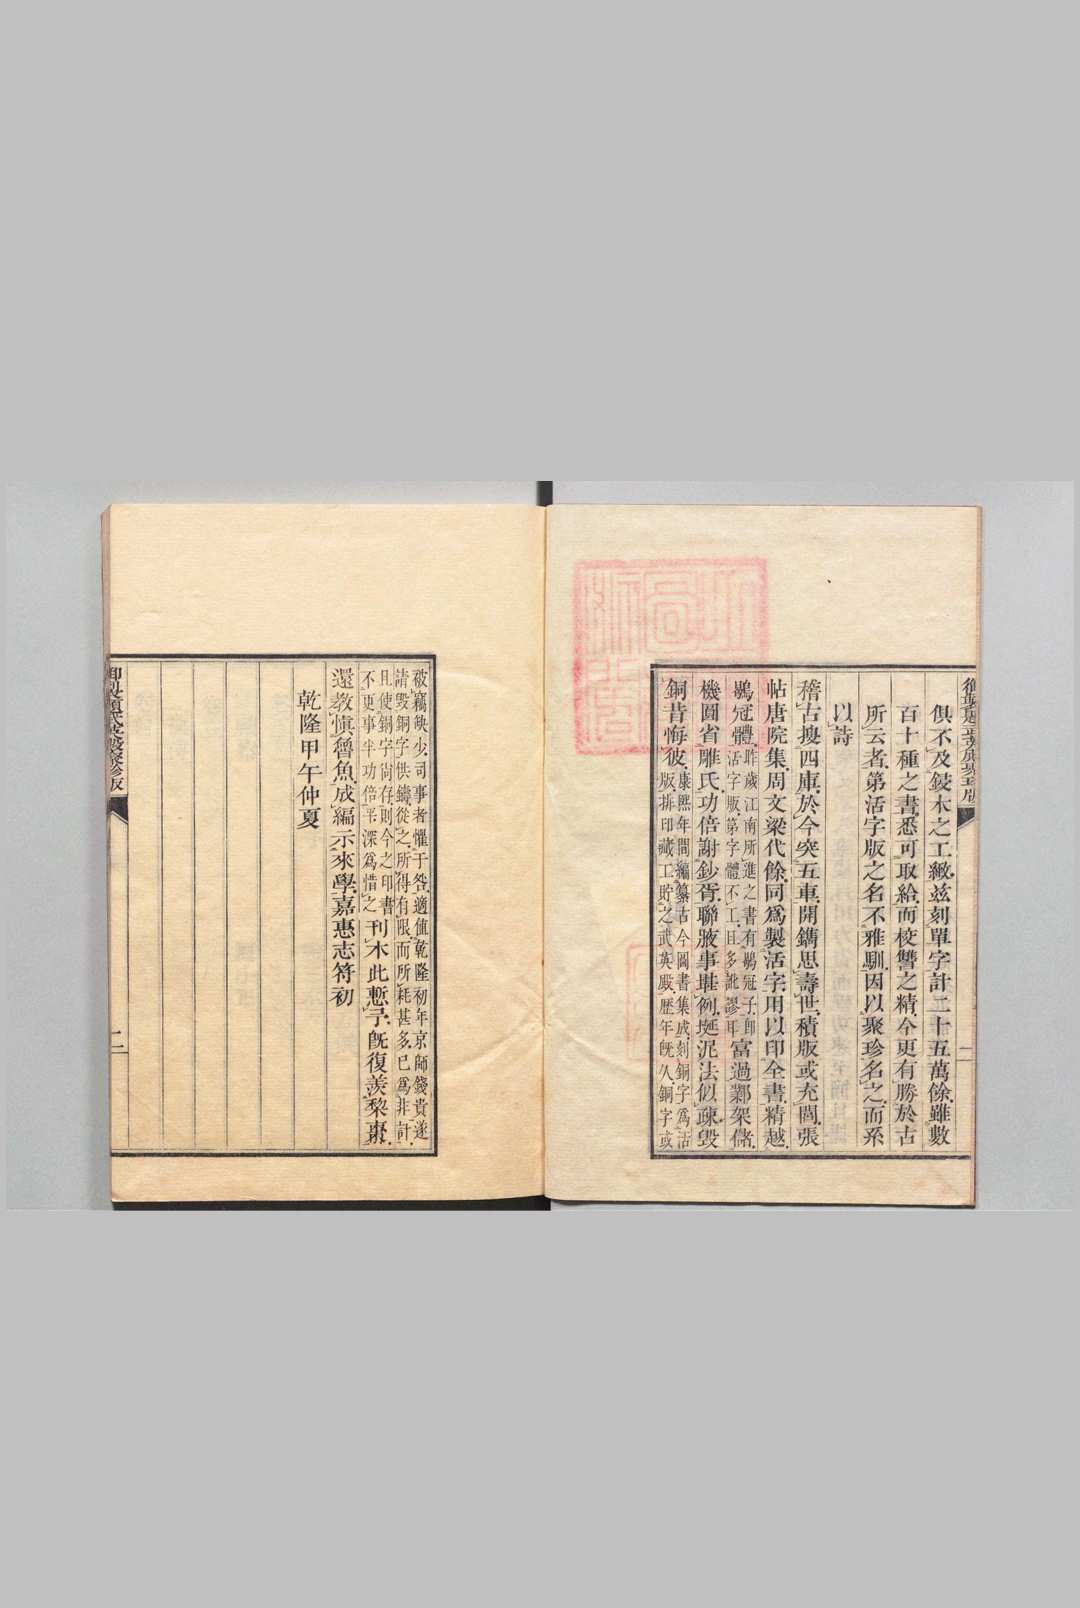 御製題武英殿聚珍版
俱不及鋟木之工緻茲刻單字計二十五萬餘雖數
百十種之書悉可取給而校讐之精今更有勝於古
所云者第活字版之名不雅馴因以聚珍名之而系
以詩
稽古搜四庫於今突五車開鐫思壽世積版或充閭張
帖唐院集周文梁代餘同爲製活字用以印全書精越
鶡冠體
昨歲江南所進之書有鶡冠子即
活字版第字體不工且多訛謬耳
富過鄴架儲
機圓省雕氏功倍謝鈔胥聯腋事堪例埏泥法似疎毀
銅昔悔彼
康熙年間編纂古今圖書集成刻銅字爲活
版排印藏工貯之武英殿歷年既久銅字或
破竊缺少司事者懼干咎適值乾隆初年京師錢貴遂
請毀銅字供鑄從之所得有限而所耗甚多已爲非計
且使銅字尚存則今之印書
不更事半功倍乎深爲惜之
刊木此慙予既復羨梨棗
還教愼魯魚成編示來學嘉惠志符初
乾隆甲午仲夏
御製題武英殿聚珍版
二